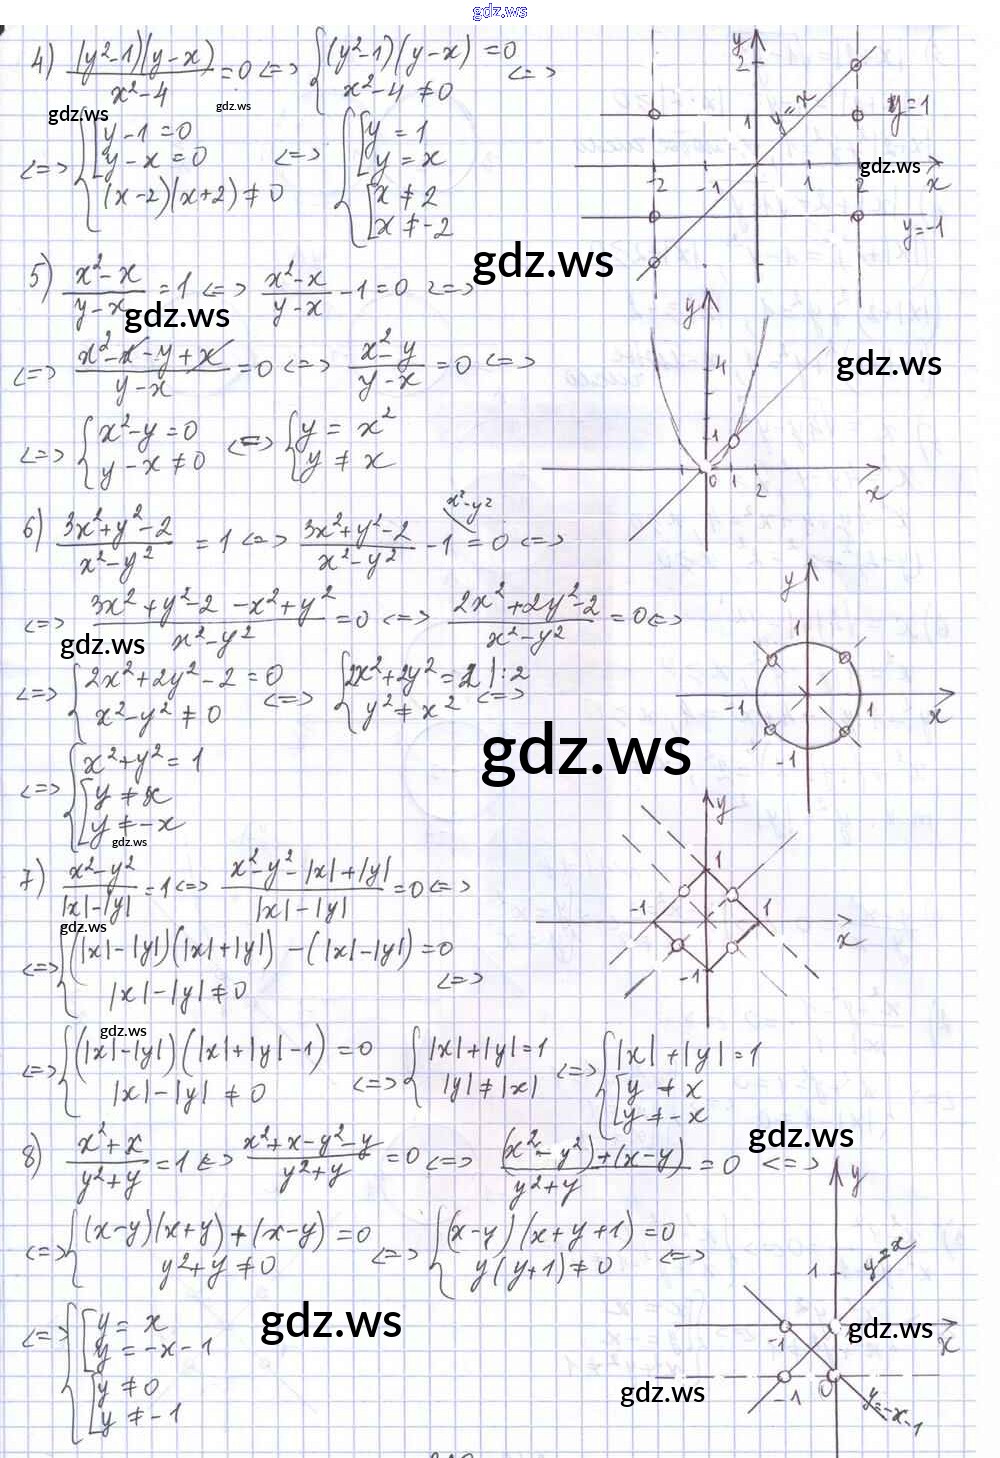 gdz.ws
4) (y²-1)(y-x)/(x²-4) = 0 <=> { (y²-1)(y-x) = 0; x²-4 ≠ 0 <=>
gdz.ws gdz.ws
<=> { [ y-1 = 0; y-x = 0; (x-2)(x+2) ≠ 0 <=> { [ y = 1; y = x; [ x ≠ 2; x ≠ -2
y 2 1 y=x y=1 -2 -1 1 2 x y=-1
gdz.ws
gdz.ws
5) (x²-x)/(y-x) = 1 <=> (x²-x)/(y-x) - 1 = 0 <=>
gdz.ws
<=> (x²-x-y+x)/(y-x) = 0 <=> (x²-y)/(y-x) = 0 <=>
gdz.ws
<=> { x²-y = 0; y-x ≠ 0 <=> { y = x²; y ≠ x
y 4 1 0 1 2 x
6) (3x²+y²-2)/(x²-y²) = 1 <=> (3x²+y²-2)/(x²-y²) - 1 = 0 <=>
x²-y²
<=> (3x²+y²-2-x²+y²)/(x²-y²) = 0 <=> (2x²+2y²-2)/(x²-y²) = 0 <=>
gdz.ws
<=> { 2x²+2y²-2 = 0; x²-y² ≠ 0 <=> { 2x²+2y² = 2 |:2; y² ≠ x² <=>
y 1 -1 1 x -1
gdz.ws
<=> { x²+y² = 1; [ y ≠ x; y ≠ -x
gdz.ws
7) (x²-y²)/(|x|-|y|) = 1 <=> (x²-y²-|x|+|y|)/(|x|-|y|) = 0 <=>
gdz.ws
<=> { (|x|-|y|)(|x|+|y|) - (|x|-|y|) = 0; |x|-|y| ≠ 0 <=>
y 1 -1 1 x -1
gdz.ws
<=> { (|x|-|y|)(|x|+|y|-1) = 0; |x|-|y| ≠ 0 <=> { |x|+|y| = 1; |y| ≠ |x| <=> { |x|+|y| = 1; [ y ≠ x; y ≠ -x
gdz.ws
8) (x²+x)/(y²+y) = 1 <=> (x²+x-y²-y)/(y²+y) = 0 <=> ((x²-y²)+(x-y))/(y²+y) = 0 <=>
<=> { (x-y)(x+y)+(x-y) = 0; y²+y ≠ 0 <=> { (x-y)(x+y+1) = 0; y(y+1) ≠ 0 <=>
gdz.ws
<=> { [ y = x; y = -x-1; [ y ≠ 0; y ≠ -1
y 1 y=x -1 x -1 0 y=-x-1
gdz.ws
gdz.ws